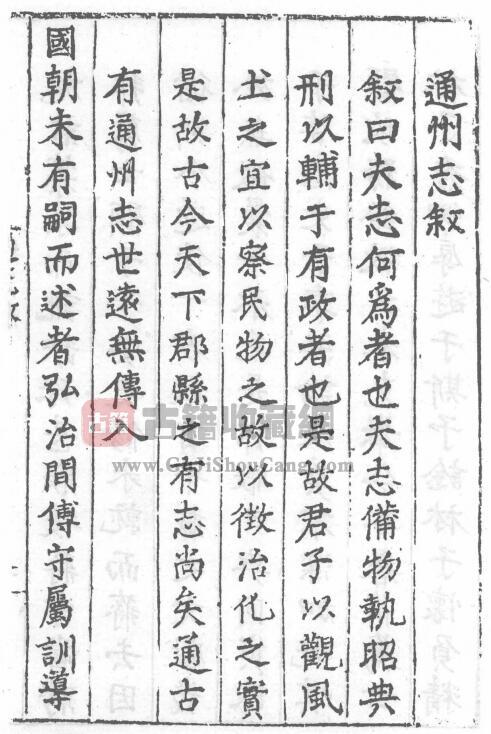 通州志敘
叙曰夫志何爲者也夫志備物執昭典
刑以輔于有政者也是故君子以觀風
土之宜以察民物之故以徵治化之實
是故古今天下郡縣之有志尚矣通古
有通州志世遠無傳入
國朝未有嗣而述者弘治間傅守屬訓導
古籍 古籍收藏網
www.GuJiShouCang.com